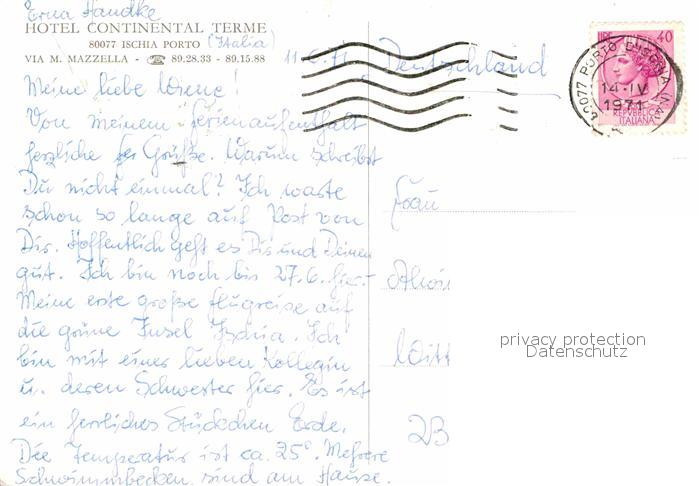 Erna Handke
HOTEL CONTINENTAL TERME
80077 ISCHIA PORTO (Italia)
VIA M. MAZZELLA - ☎ 89.28.33 - 89.15.88
Meine liebe
Von meinem Ferienaufenthalt
herzliche Grüße. Warum schreibst
Du nicht einmal? Ich warte
schon so lange auf Post von
Dir. Hoffentlich geht es Dir und Deinen
gut. Ich bin noch bis 27.6. hier.
Meine erste große Flugreise auf
die grüne Insel Ischia. Ich
bin mit einer lieben Kollegin
u. deren Schwester hier. Es ist
ein herrliches Stückchen Erde.
Die Temperatur ist ca. 25°. Mehrere
Schwimmbecken sind am Hause.
Deutschland
LIRE 40
REPVBBLICA
ITALIANA
80077 PORTO D'ISCHIA (NA)
1971
Frau
Witt
2B
privacy protection
Datenschutz